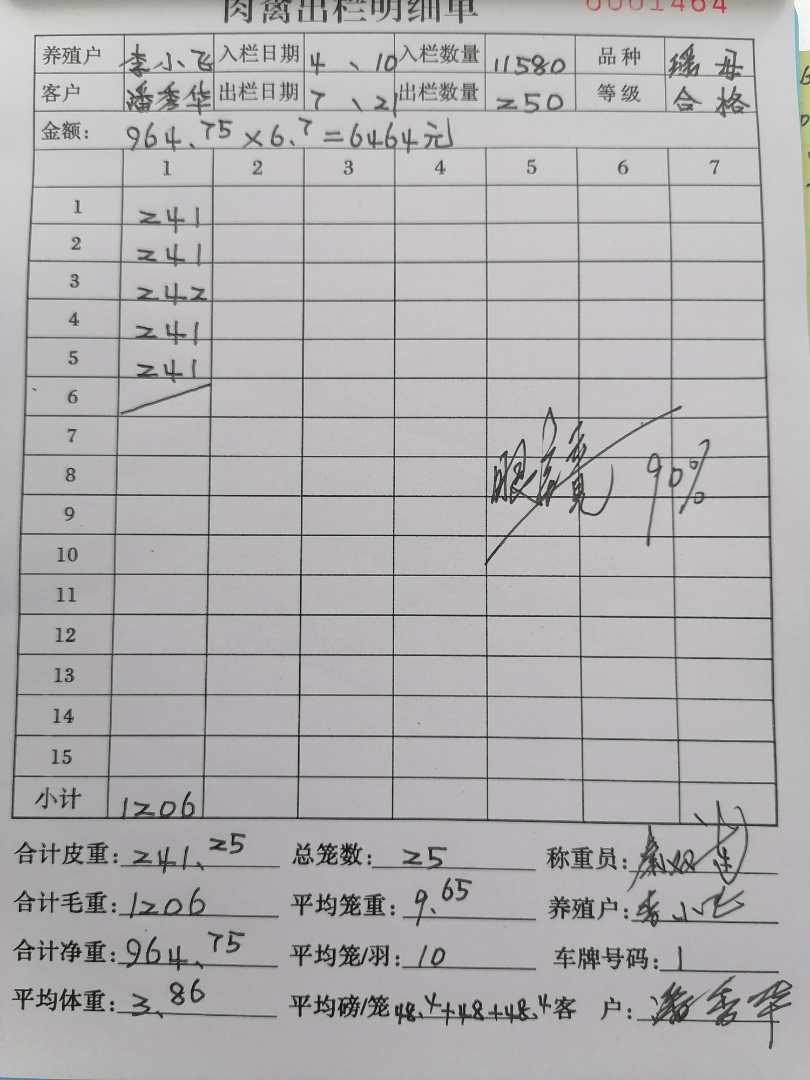 肉禽出栏明细单 0001464
养殖户 李小飞 入栏日期 4、10 入栏数量 11580 品种 瑶母
客户 潘秀华 出栏日期 7、21 出栏数量 250 等级 合格
金额: 964.75×6.7=6464元
1 2 3 4 5 6 7
1 241
2 241
3 242
4 241
5 241
6
7
8 90%
9
10
11
12
13
14
15
小计 1206
合计皮重: 241.25 总笼数: 25 称重员:
合计毛重: 1206 平均笼重: 9.65 养殖户: 李小飞
合计净重: 964.75 平均笼/羽: 10 车牌号码: 1
平均体重: 3.86 平均磅/笼 48.4+48+48.4 客户: 潘秀华